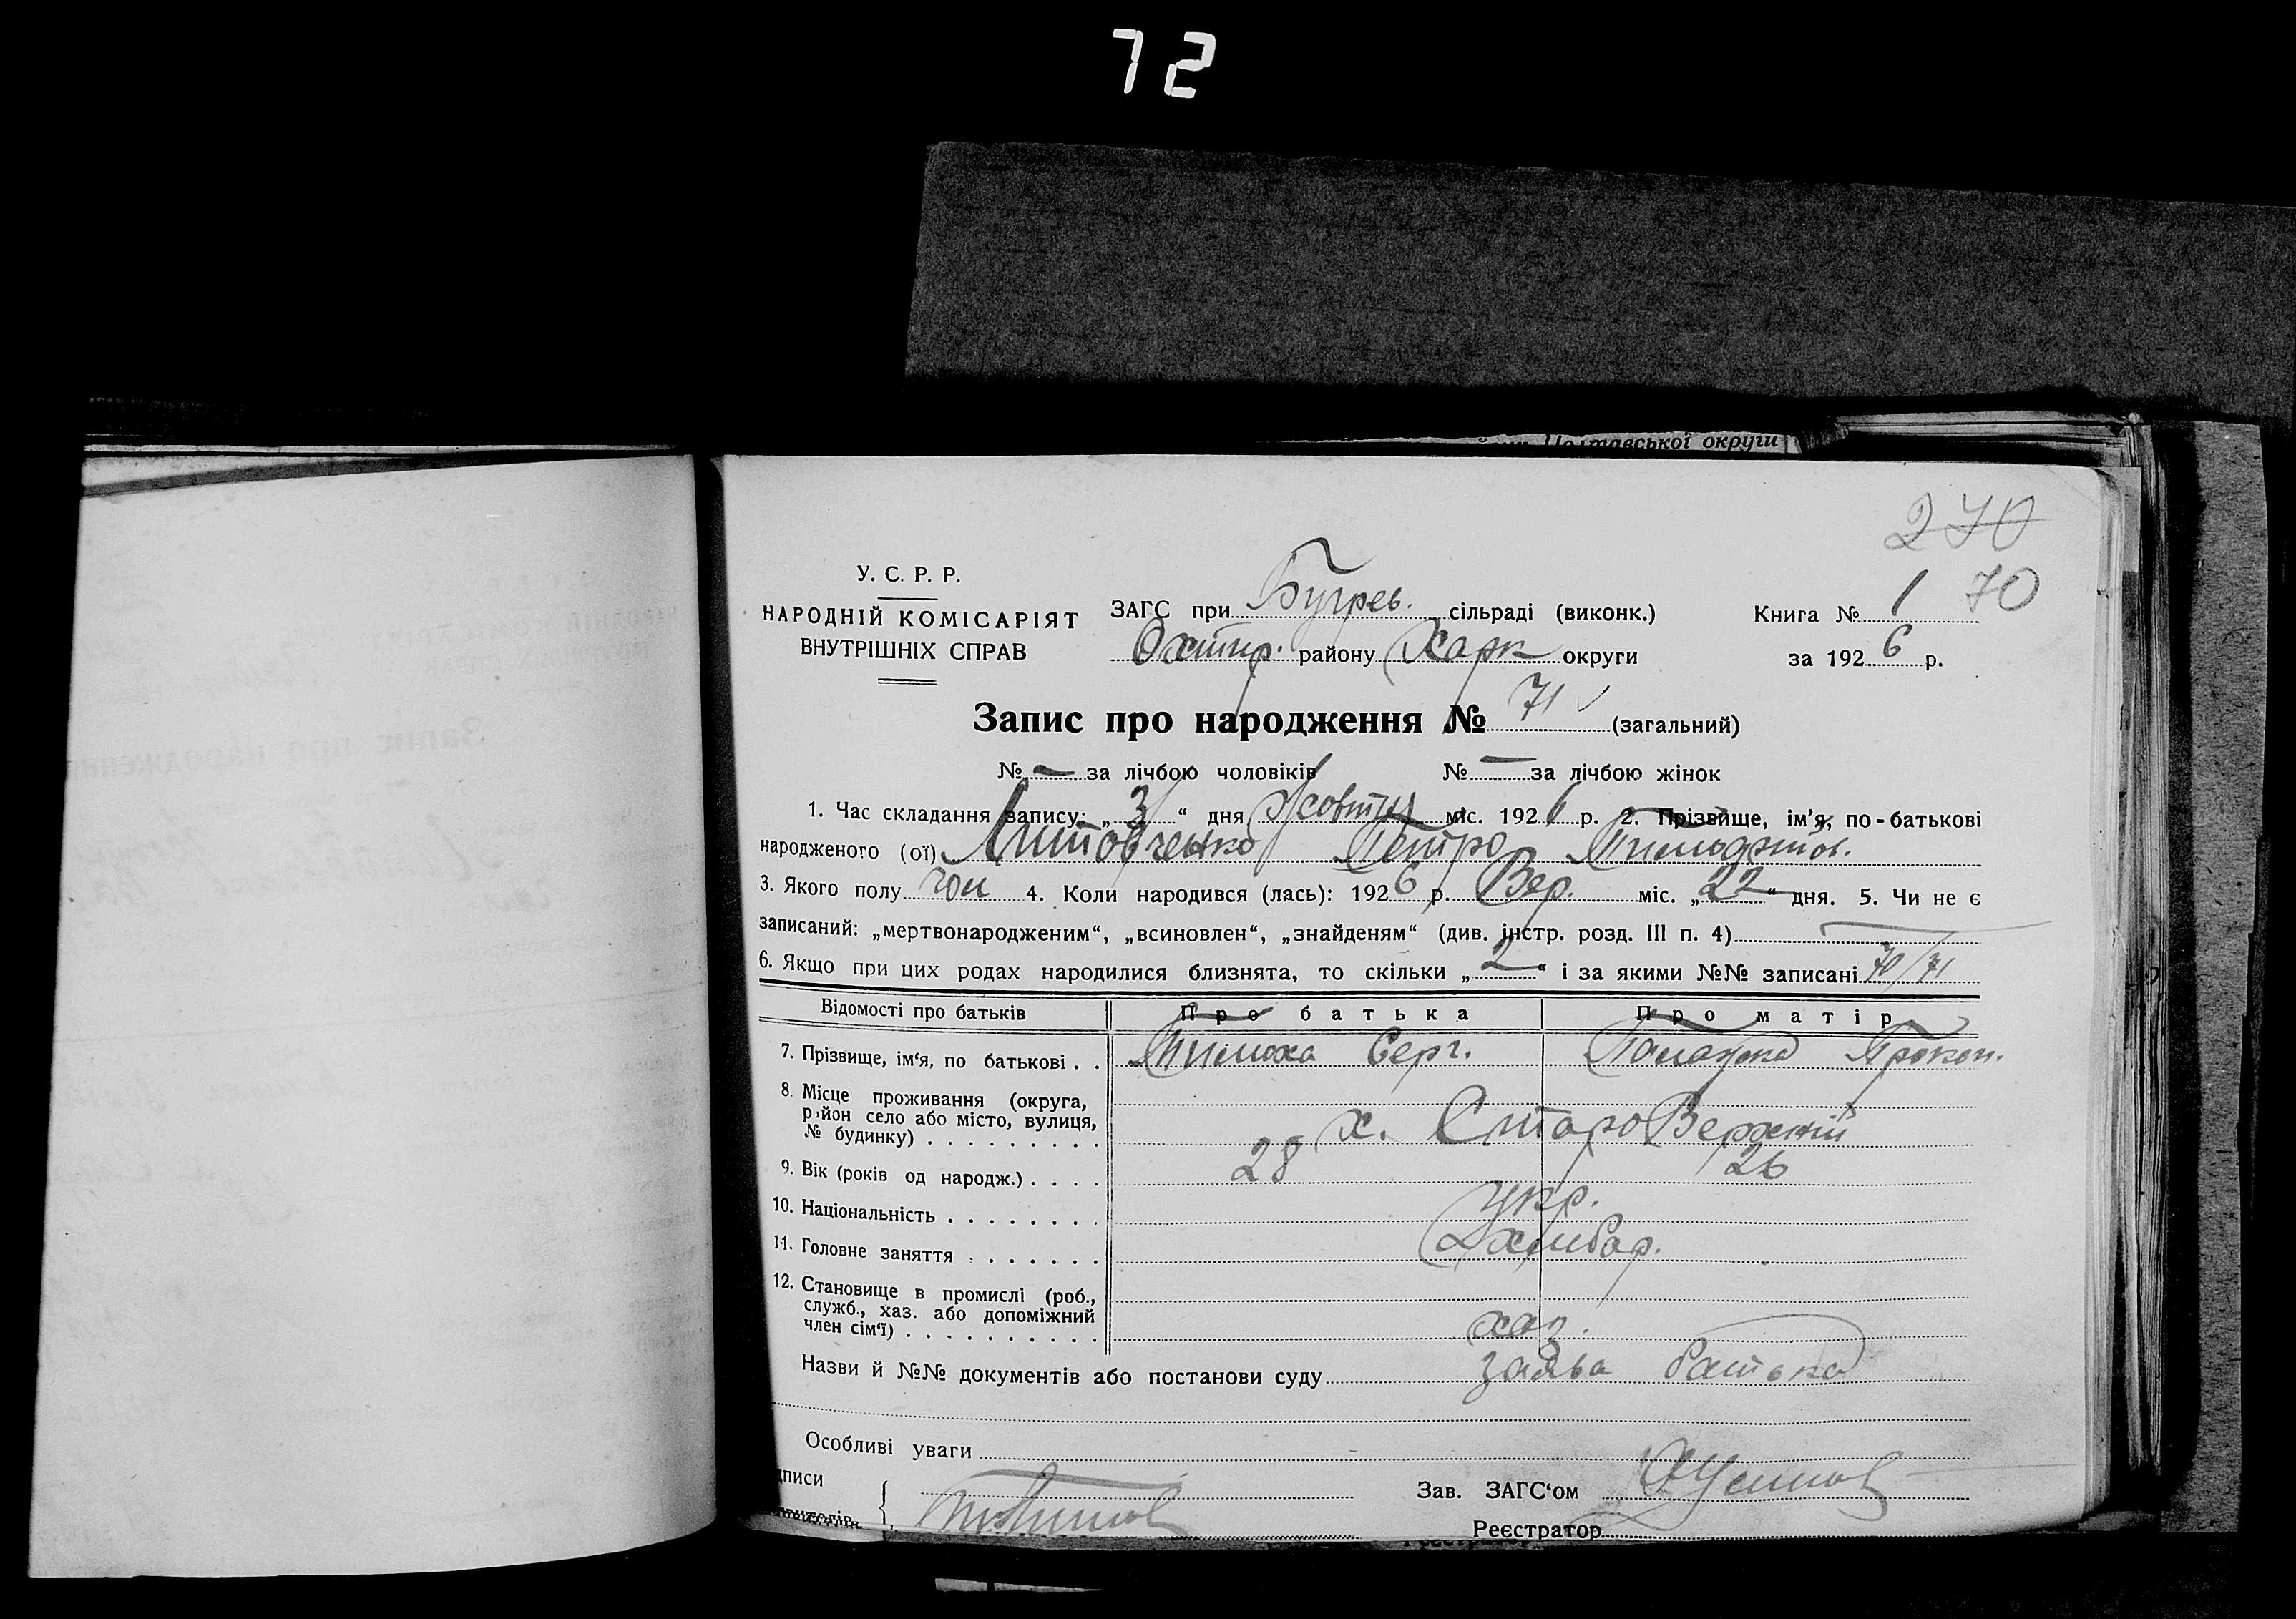 72
Полтавської округи
270
70
У. С. Р. Р.
НАРОДНІЙ КОМІСАРІЯТ
ВНУТРІШНІХ СПРАВ
ЗАГС при Бугрев. сільраді (виконк.)
Охтир. району Харк округи
Книга № 1
за 1926 р.
Запис про народження № 71 (загальний)
№ — за лічбою чоловіків № — за лічбою жінок
1. Час складання запису: „3/“ дня Жовтня міс. 1926 р. 2. Прізвище, ім’я, по-батькові
народженого (ої) Литовченко Петро
3. Якого полу чол 4. Коли народився (лась): 1926 р. Вер. міс. „22“ дня. 5. Чи не є
записаний: „мертвонародженим“, „всиновлен“, „знайденям“ (див. інстр. розд. III п. 4) —
6. Якщо при цих родах народилися близнята, то скільки „2“ і за якими №№ записані 70/71
Відомості про батьків Про батька Про матір
7. Прізвище, ім‘я, по батькові . . Тимоха Серг. Прокоп.
8. Місце проживання (округа,
район село або місто, вулиця,
№ будинку) . . . . . . . . . х. СтароВерхній
9. Вік (років од народж.) . . . . 28 26
10. Національність . . . . . . . . укр.
11. Головне заняття . . . . . . . хлібор.
12. Становище в промислі (роб.,
служб., хаз. або допоміжний
член сім‘ї) . . . . . . . . . . хаз.
Назви й №№ документів або постанови суду заява батька
Особливі уваги
дписи
Зав. ЗАГС‘ом
Реєстратор